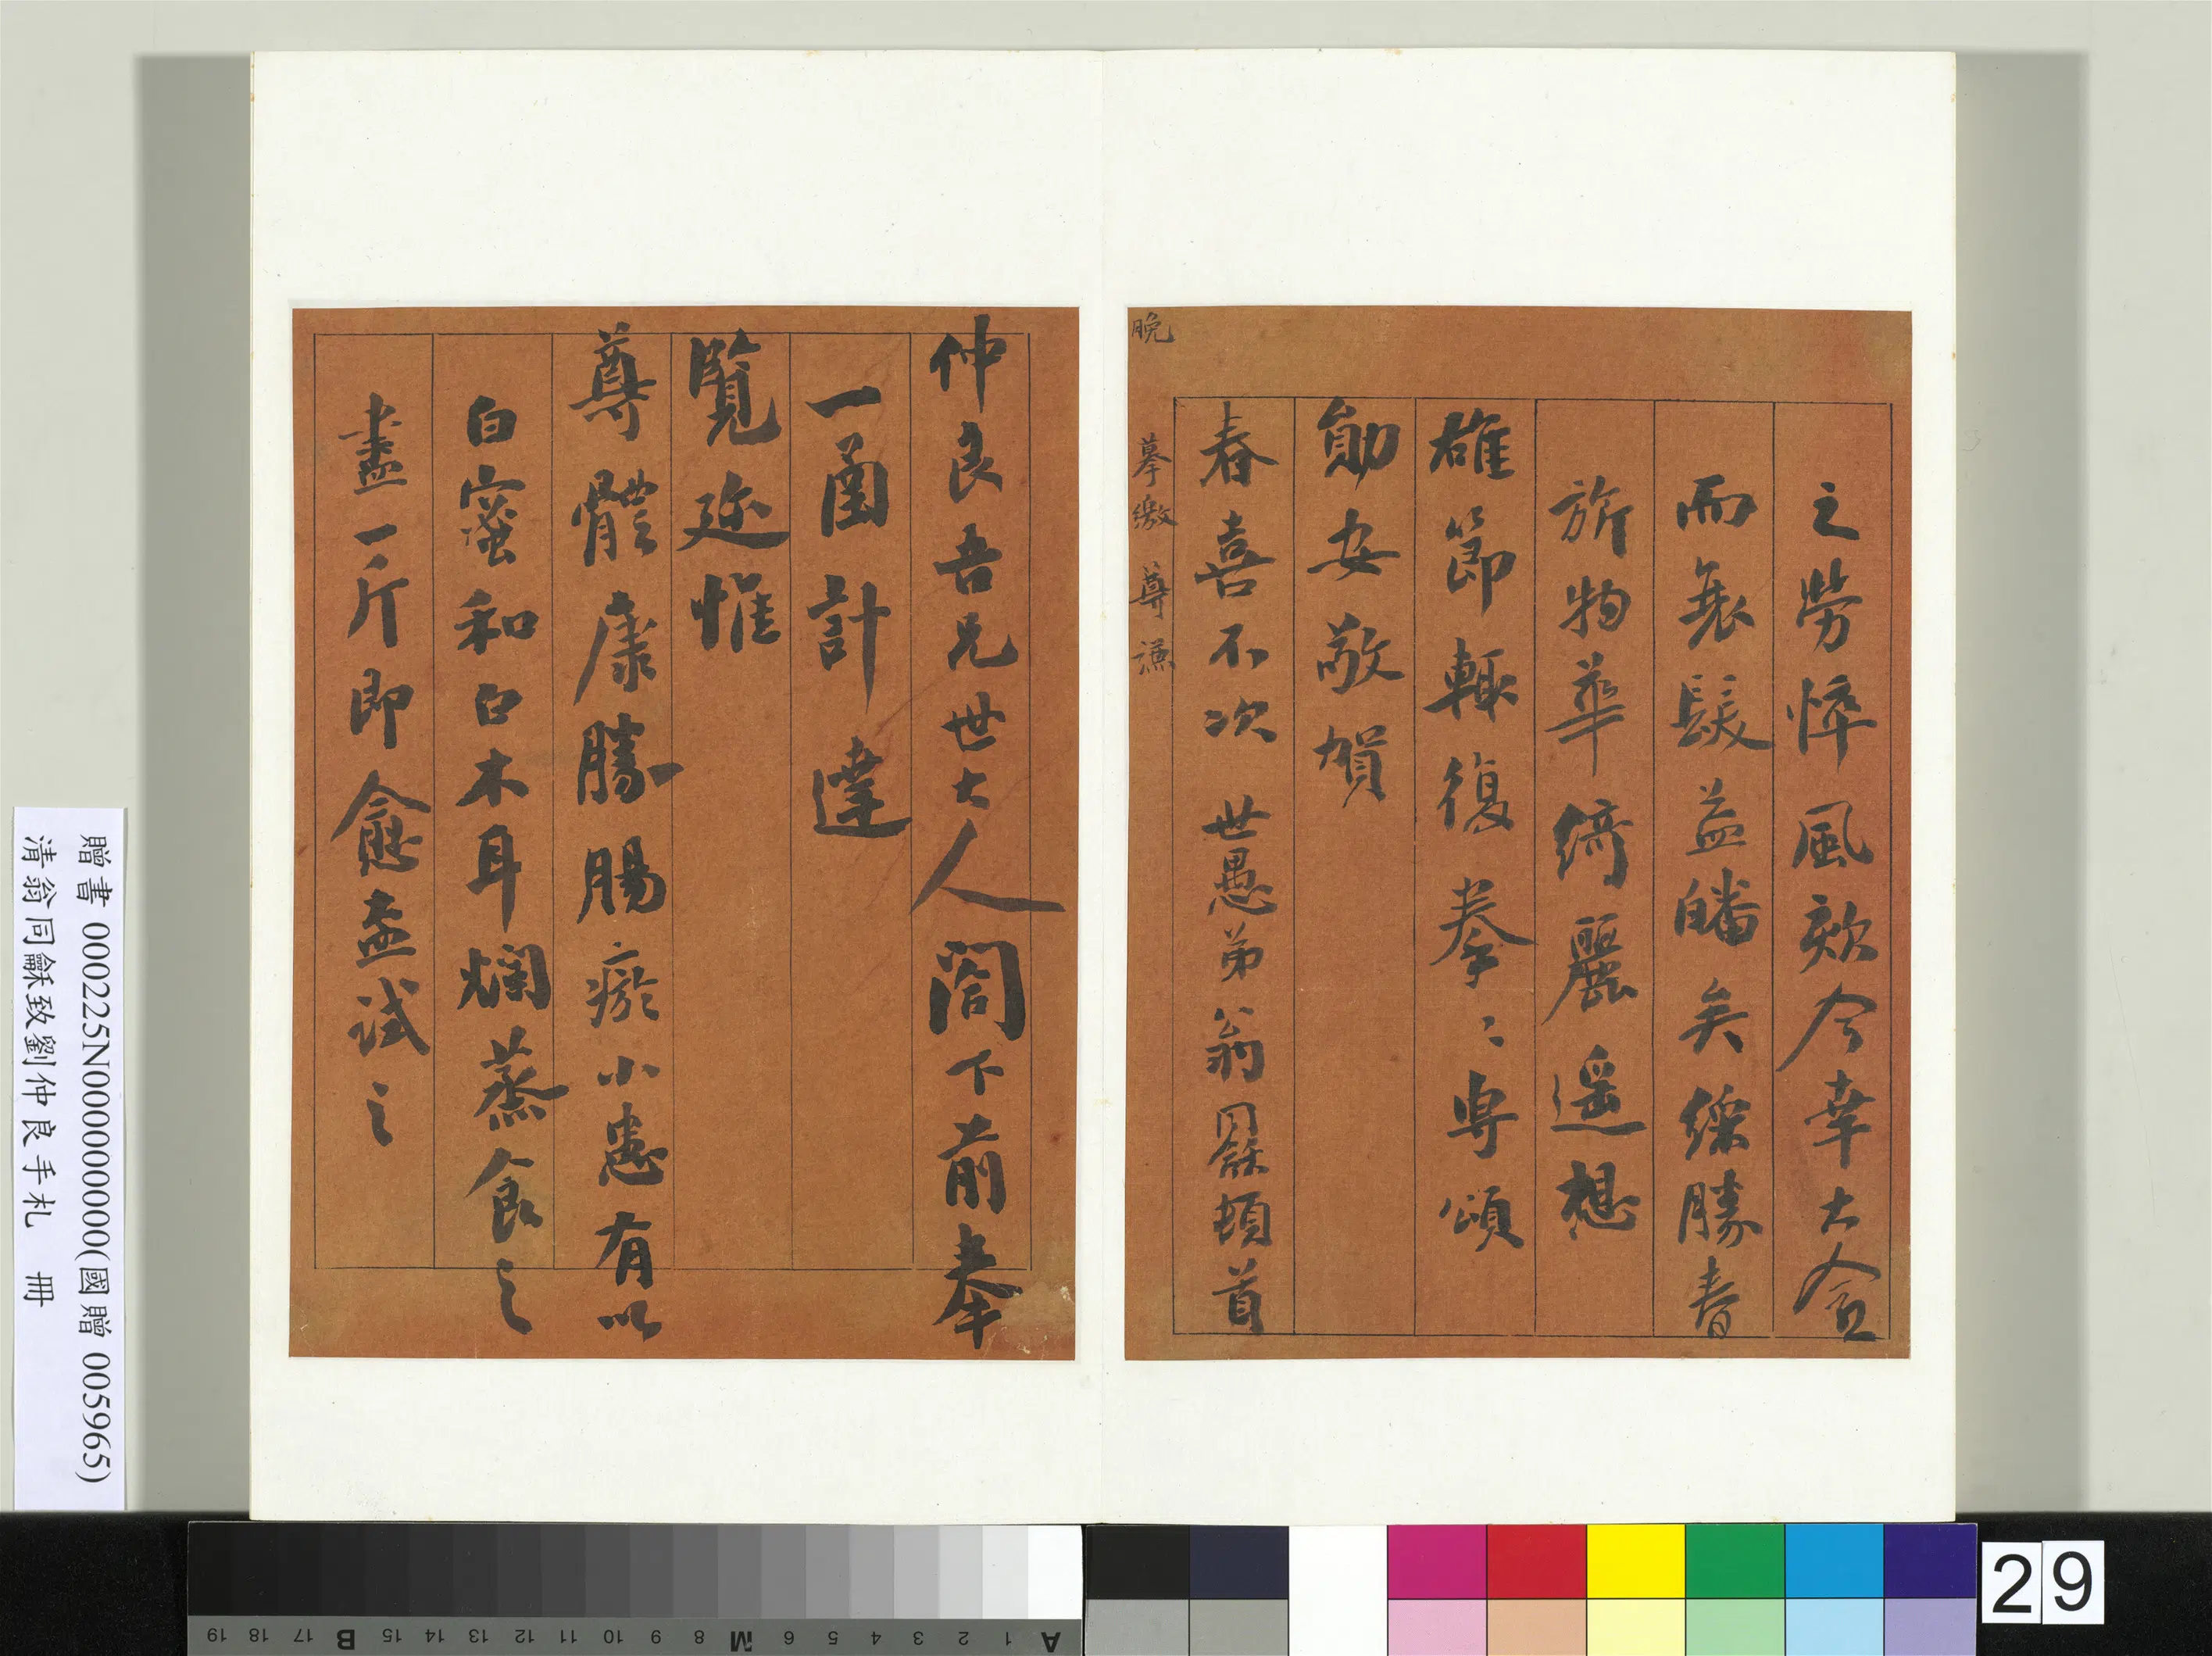 之勞悴風欬今幸大愈
而衰髮益皤矣緜勝春
旂物華綺麗遥想
雄節輒復拳〻專頌
勛安敬賀
春喜不次 世愚弟翁同龢頓首
晚 摹繳 尊謙
仲良吾兄世大人閣下前奉
一函計達
覽邇惟
尊體康勝腸癥小患有以
白蜜和白木耳爛蒸食之
盡一斤即愈盍試之
贈書 000225N000000000(國贈 005965)
清翁同龢致劉仲良手札 冊
A 1 2 3 4 5 6 M 8 9 10 11 12 13 14 15 B 17 18 19
29